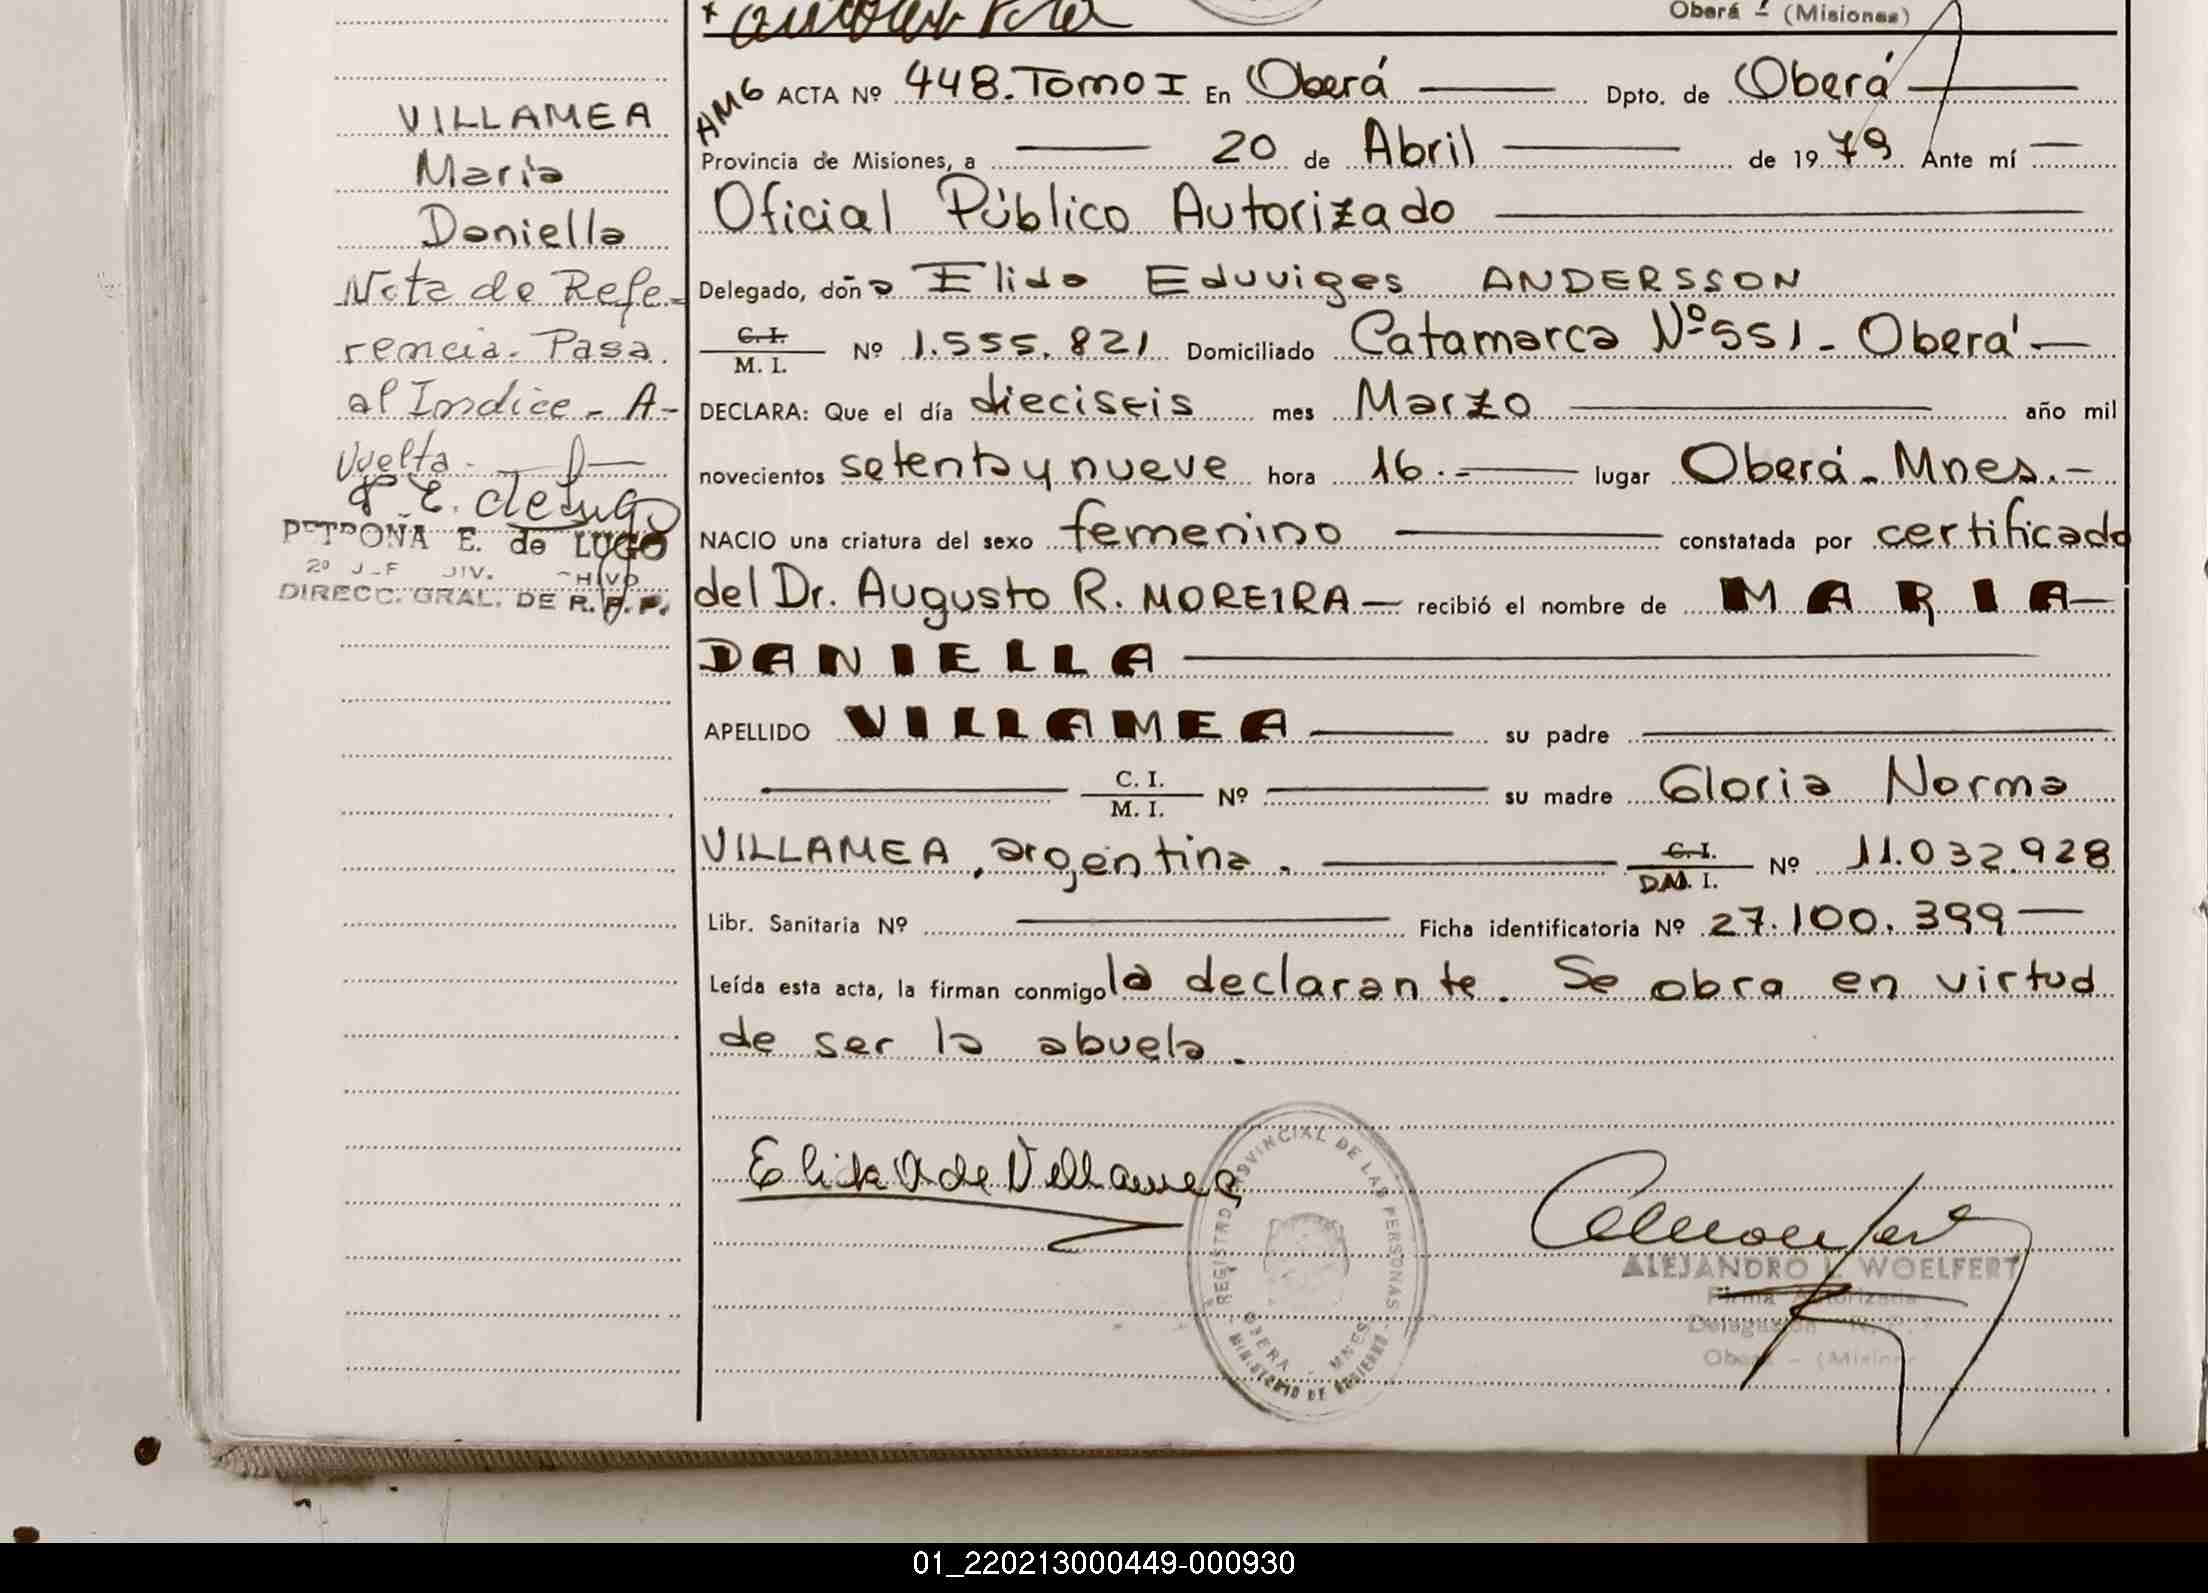 Oberá - (Misiones)
VILLAMEA
Maria
Daniella
Nota de Refe-
rencia. Pasa
al Indice - A-
vuelta.
P. E. de Lugo
PETROÑA E. de LUGO
DIRECC. GRAL. DE R. P. P.
HM6 ACTA Nº 448. Tomo I En Oberá Dpto. de Oberá
Provincia de Misiones, a 20 de Abril de 1979 Ante mí
Oficial Público Autorizado
Delegado, doña Elida Eduviges ANDERSSON
C. I. / M. I. Nº 1.555.821 Domiciliado Catamarca Nº 551 - Oberá
DECLARA: Que el día dieciseis mes Marzo año mil
novecientos setenta y nueve hora 16.- lugar Oberá - Mnes.-
NACIO una criatura del sexo femenino constatada por certificado
del Dr. Augusto R. MOREIRA recibió el nombre de MARIA
DANIELLA
APELLIDO VILLAMEA su padre
C. I. / M. I. Nº su madre Gloria Norma
VILLAMEA, argentina. C. I. / D.N. I. Nº 11.032.928
Libr. Sanitaria Nº Ficha identificatoria Nº 27.100.399
Leída esta acta, la firman conmigo la declarante. Se obra en virtud
de ser la abuela.
Elida A de Villamea
REGISTRO PROVINCIAL DE LAS PERSONAS
OBERA - MNES
MINISTERIO DE GOBIERNO
ALEJANDRO L. WOELFERT
Firma Autorizada
Delegación R. P. P.
Oberá - (Misiones
01_220213000449-000930